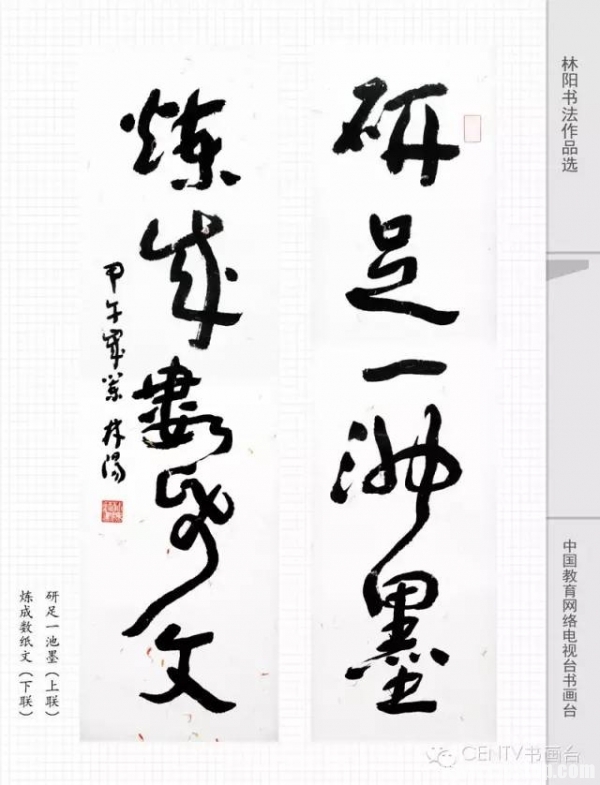 研足一池墨
炼成数纸文
甲午年冬 林阳
研足一池墨（上联）
炼成数纸文（下联）
林阳书法作品选
中国教育网络电视台书画台
CENTV书画台